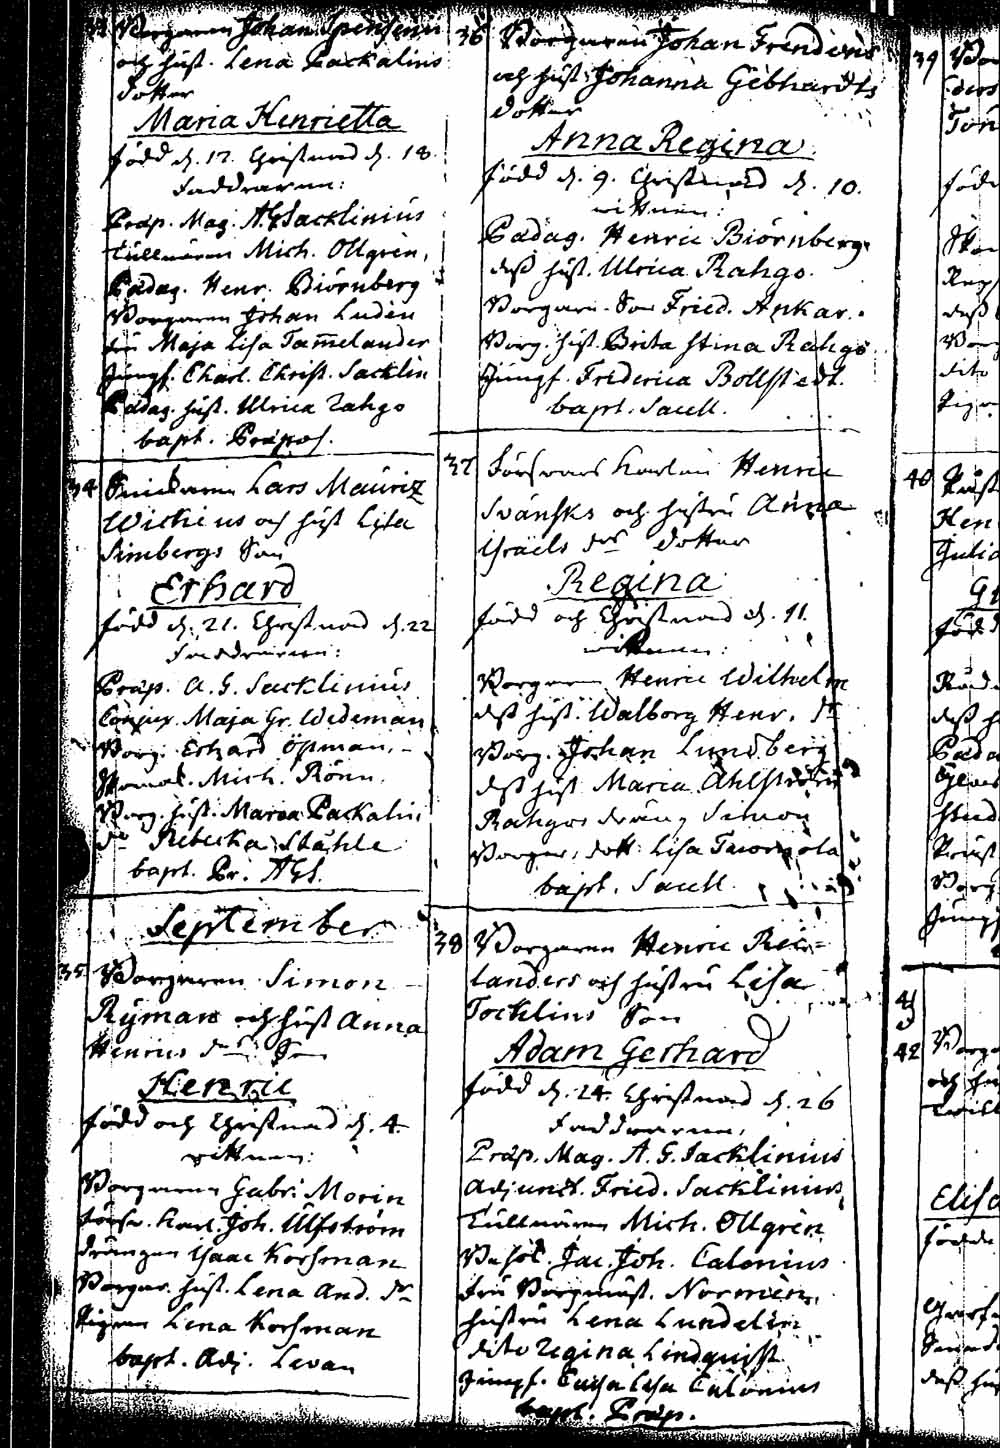 33 Borgaren Johan Spensens
och hust. Lena Packalins
dotter
Maria Henrietta
född d. 17. Christnad d. 18.
Faddrarne:
Præp. Mag. AGSacklinius
tullnären Mich. Ollgren,
Pædag. Henr. Biörnberg
Borgaren Johan Luden
fru Maja Lisa Tam̄elander
Jungf. Charl. Christ. Sacklin
Pædag. hust. Ulrica Rahgo
bapt. Præpos.
34 Lars Mauritz
Wichius och hust Lisa
Simbergs Son
Erhard
född d. 21. Christnad d. 22
Faddrarne:
Præp. A. G. Sacklinius
Conjux Maja Gr. Wedeman
Borg. Erhard Öpman,
Mich. Rönn.
Borg. hust. Maria Packalin
do Rebecka Ståhle
bapt. Pr. AGS.
September
35 Borgaren Simon
Rymans och hust Anna
Henrics dr Son
Henric
född och Christnad d. 4.
vittnen:
Borgaren Gabr. Morin
försv. karl. Joh. Ulfström
drängen Isaac Korsman
Borgar. hust. Lena And. dr
Pigan Lena Korsman
bapt. Adj. Levan
36 Borgaren Johan Frendens
och hust Johanna Gebhardts
dotter
Anna Regina
född d. 9. Christnad d. 10.
vittnen:
Pædag. Henric Biörnberg
dess hust. Ulrica Rahgo.
Borgare-Son Fried. Ankar.
Borg. hust. Brita Stina Rahgo
Jungf. Friderica Bollstedt.
bapt. Sacell.
37 Försvars karlen Henric
Svänsks och hustru Anna
Israels dr dotter
Regina
född och Christnad d. 11.
vittnen:
Borgaren Henric Wilhelm
dess hust. Walborg Henr. dr
Borg. Johan Lundberg
dess hust Maria Ahlström
Rahgos dräng Simon
Borgar. dott. Lisa
bapt. Sacell.
38 Borgaren Henric Rei-
landers och hustru Lisa
Tocklins Son
Adam Gerhard
född d. 24. Christnad d. 26
Faddrarne,
Præp. Mag. A. G. Sacklinius
Adjunct. Fried. Sacklinius
Tullnären Mich. Ollgren
Jac. Joh. Calonius
fru Borgmäst. Normen,
hustru Lena Lundelin
dito Regina Lindquist
Jungf. Caisa Lisa Calonius
bapt. Præp.
39
40
Hen
41
42
Elisa
född